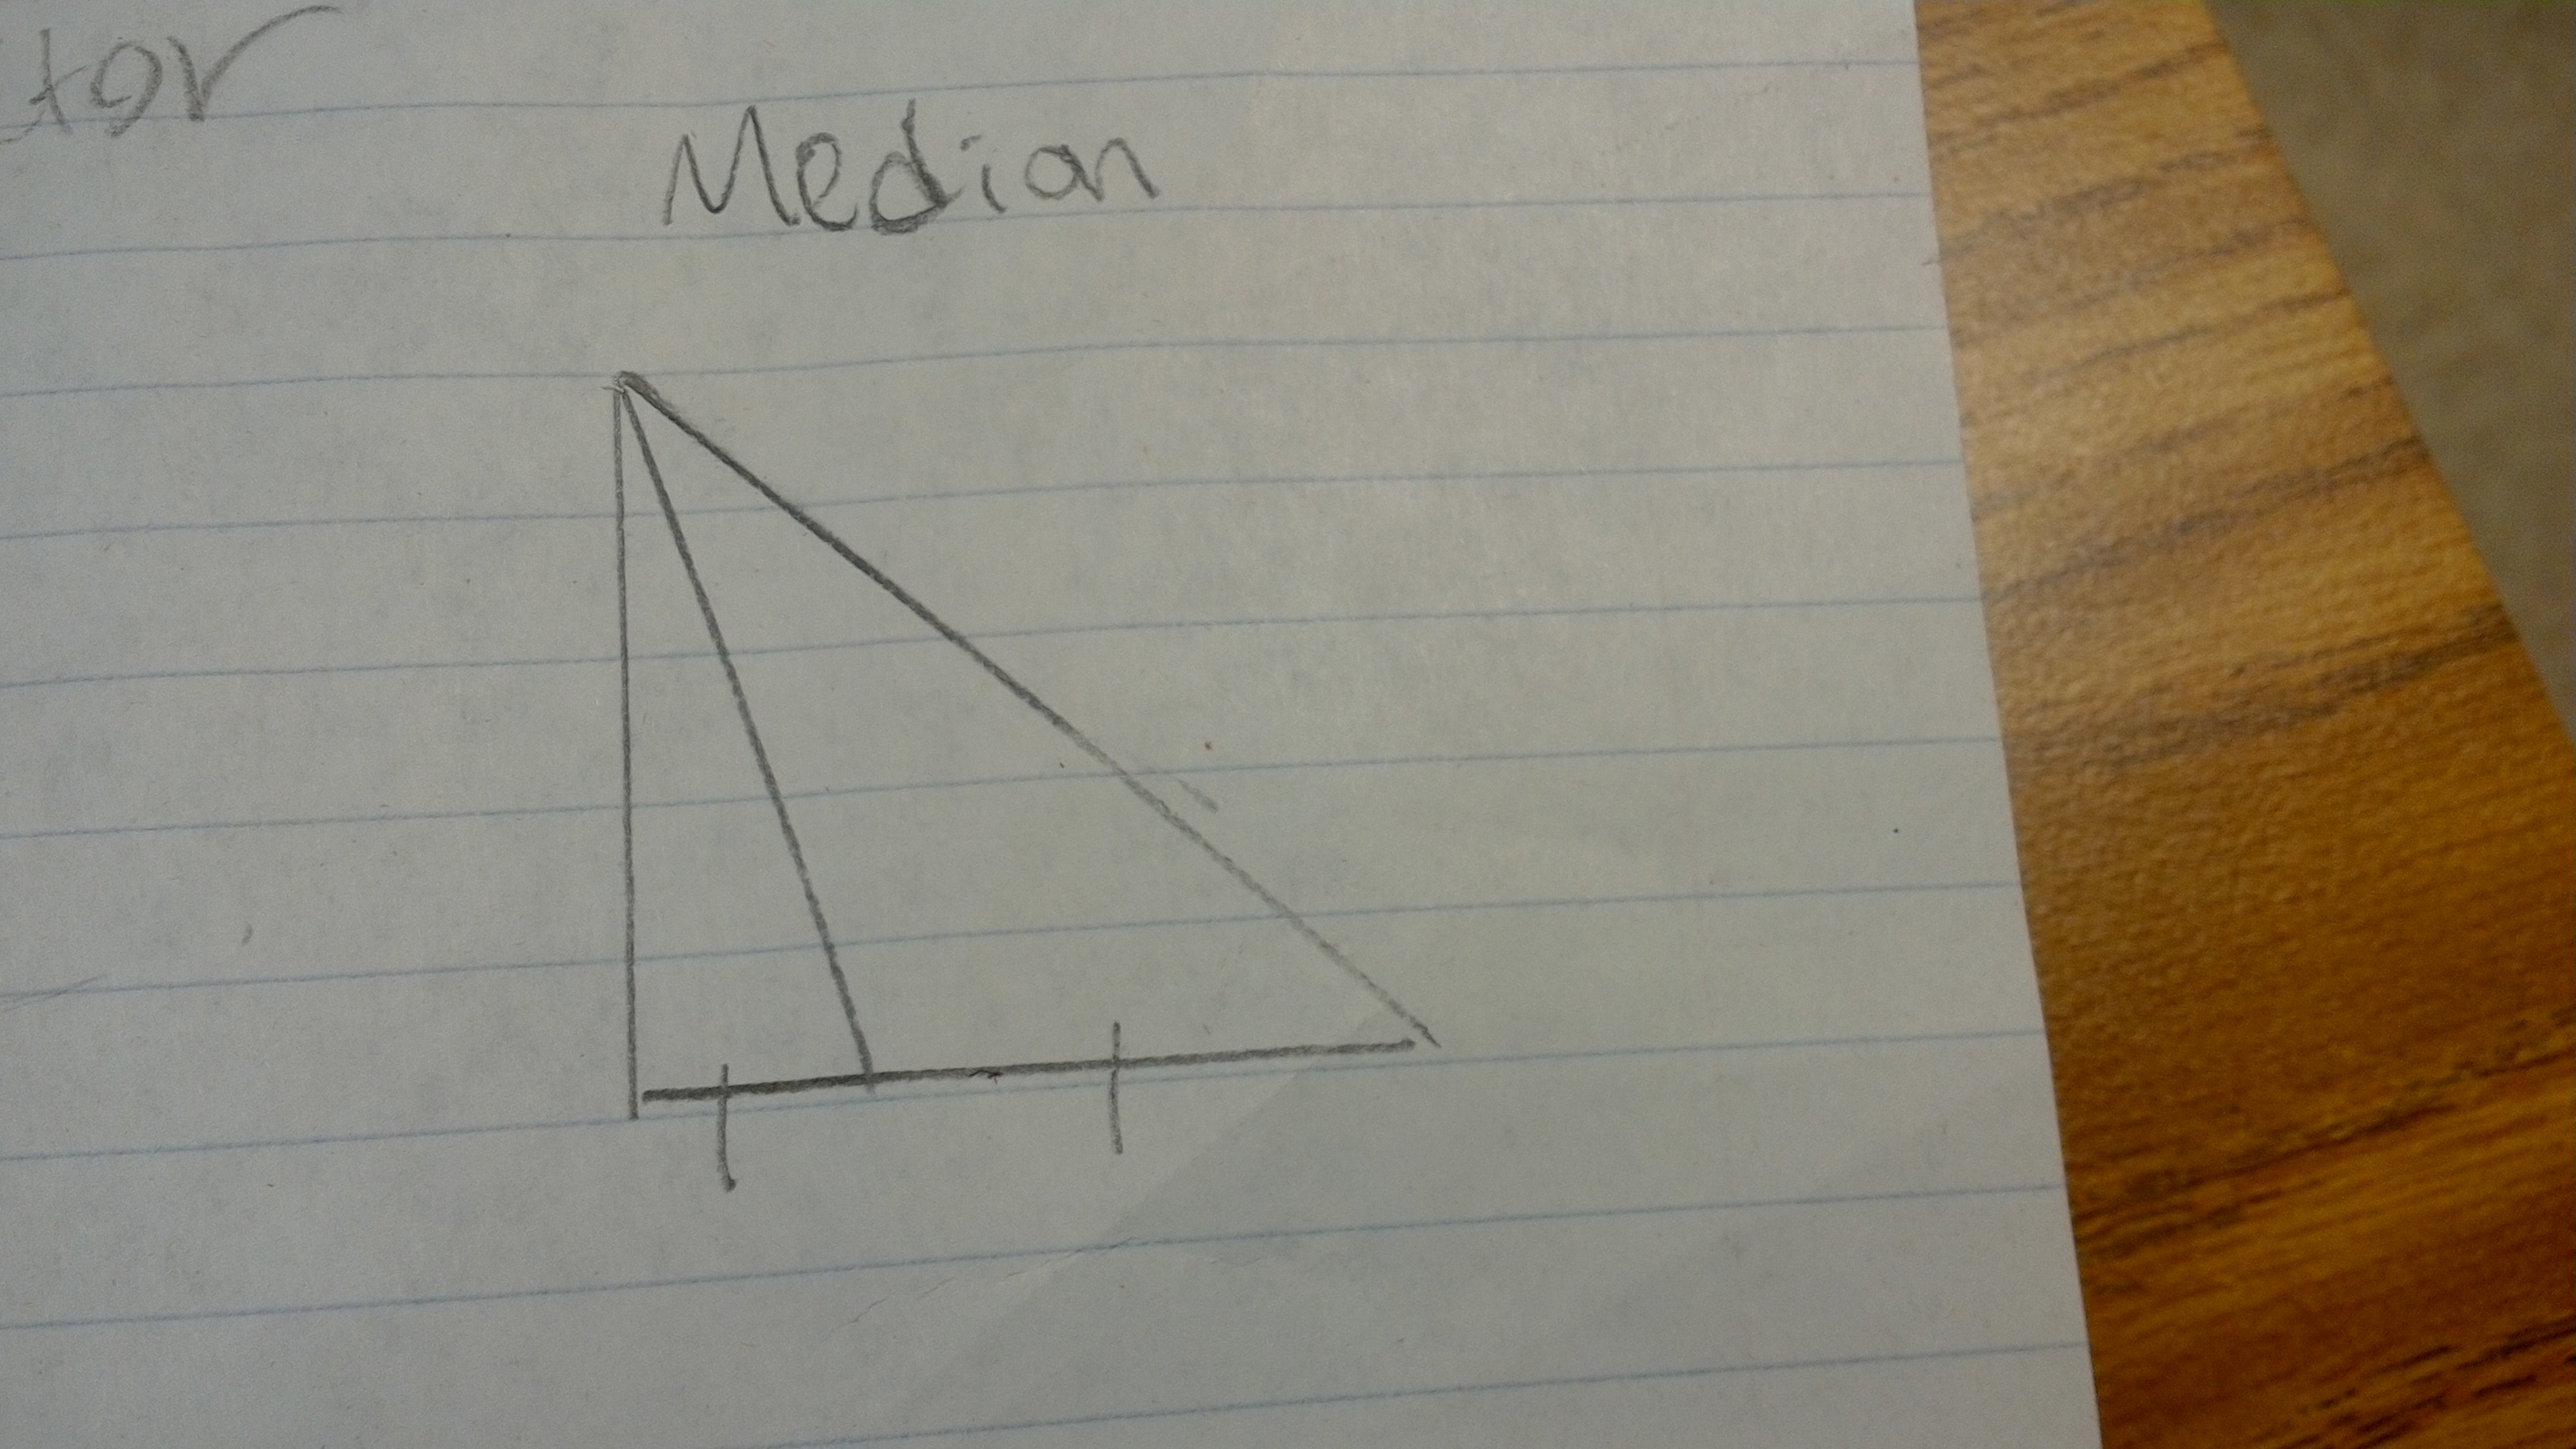 tor
Median